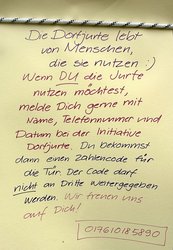 Die Dorfjurte lebt
von Menschen,
die sie nutzen :)
Wenn DU die Jurte
nutzen möchtest,
melde Dich gerne mit
Name, Telefonnummer und
Datum bei der Initiative
Dorfjurte. Du bekommst
dann einen Zahlencode für
die Tür. Der Code darf
nicht an Dritte weitergegeben
werden. Wir freuen uns
auf Dich!
017610185890